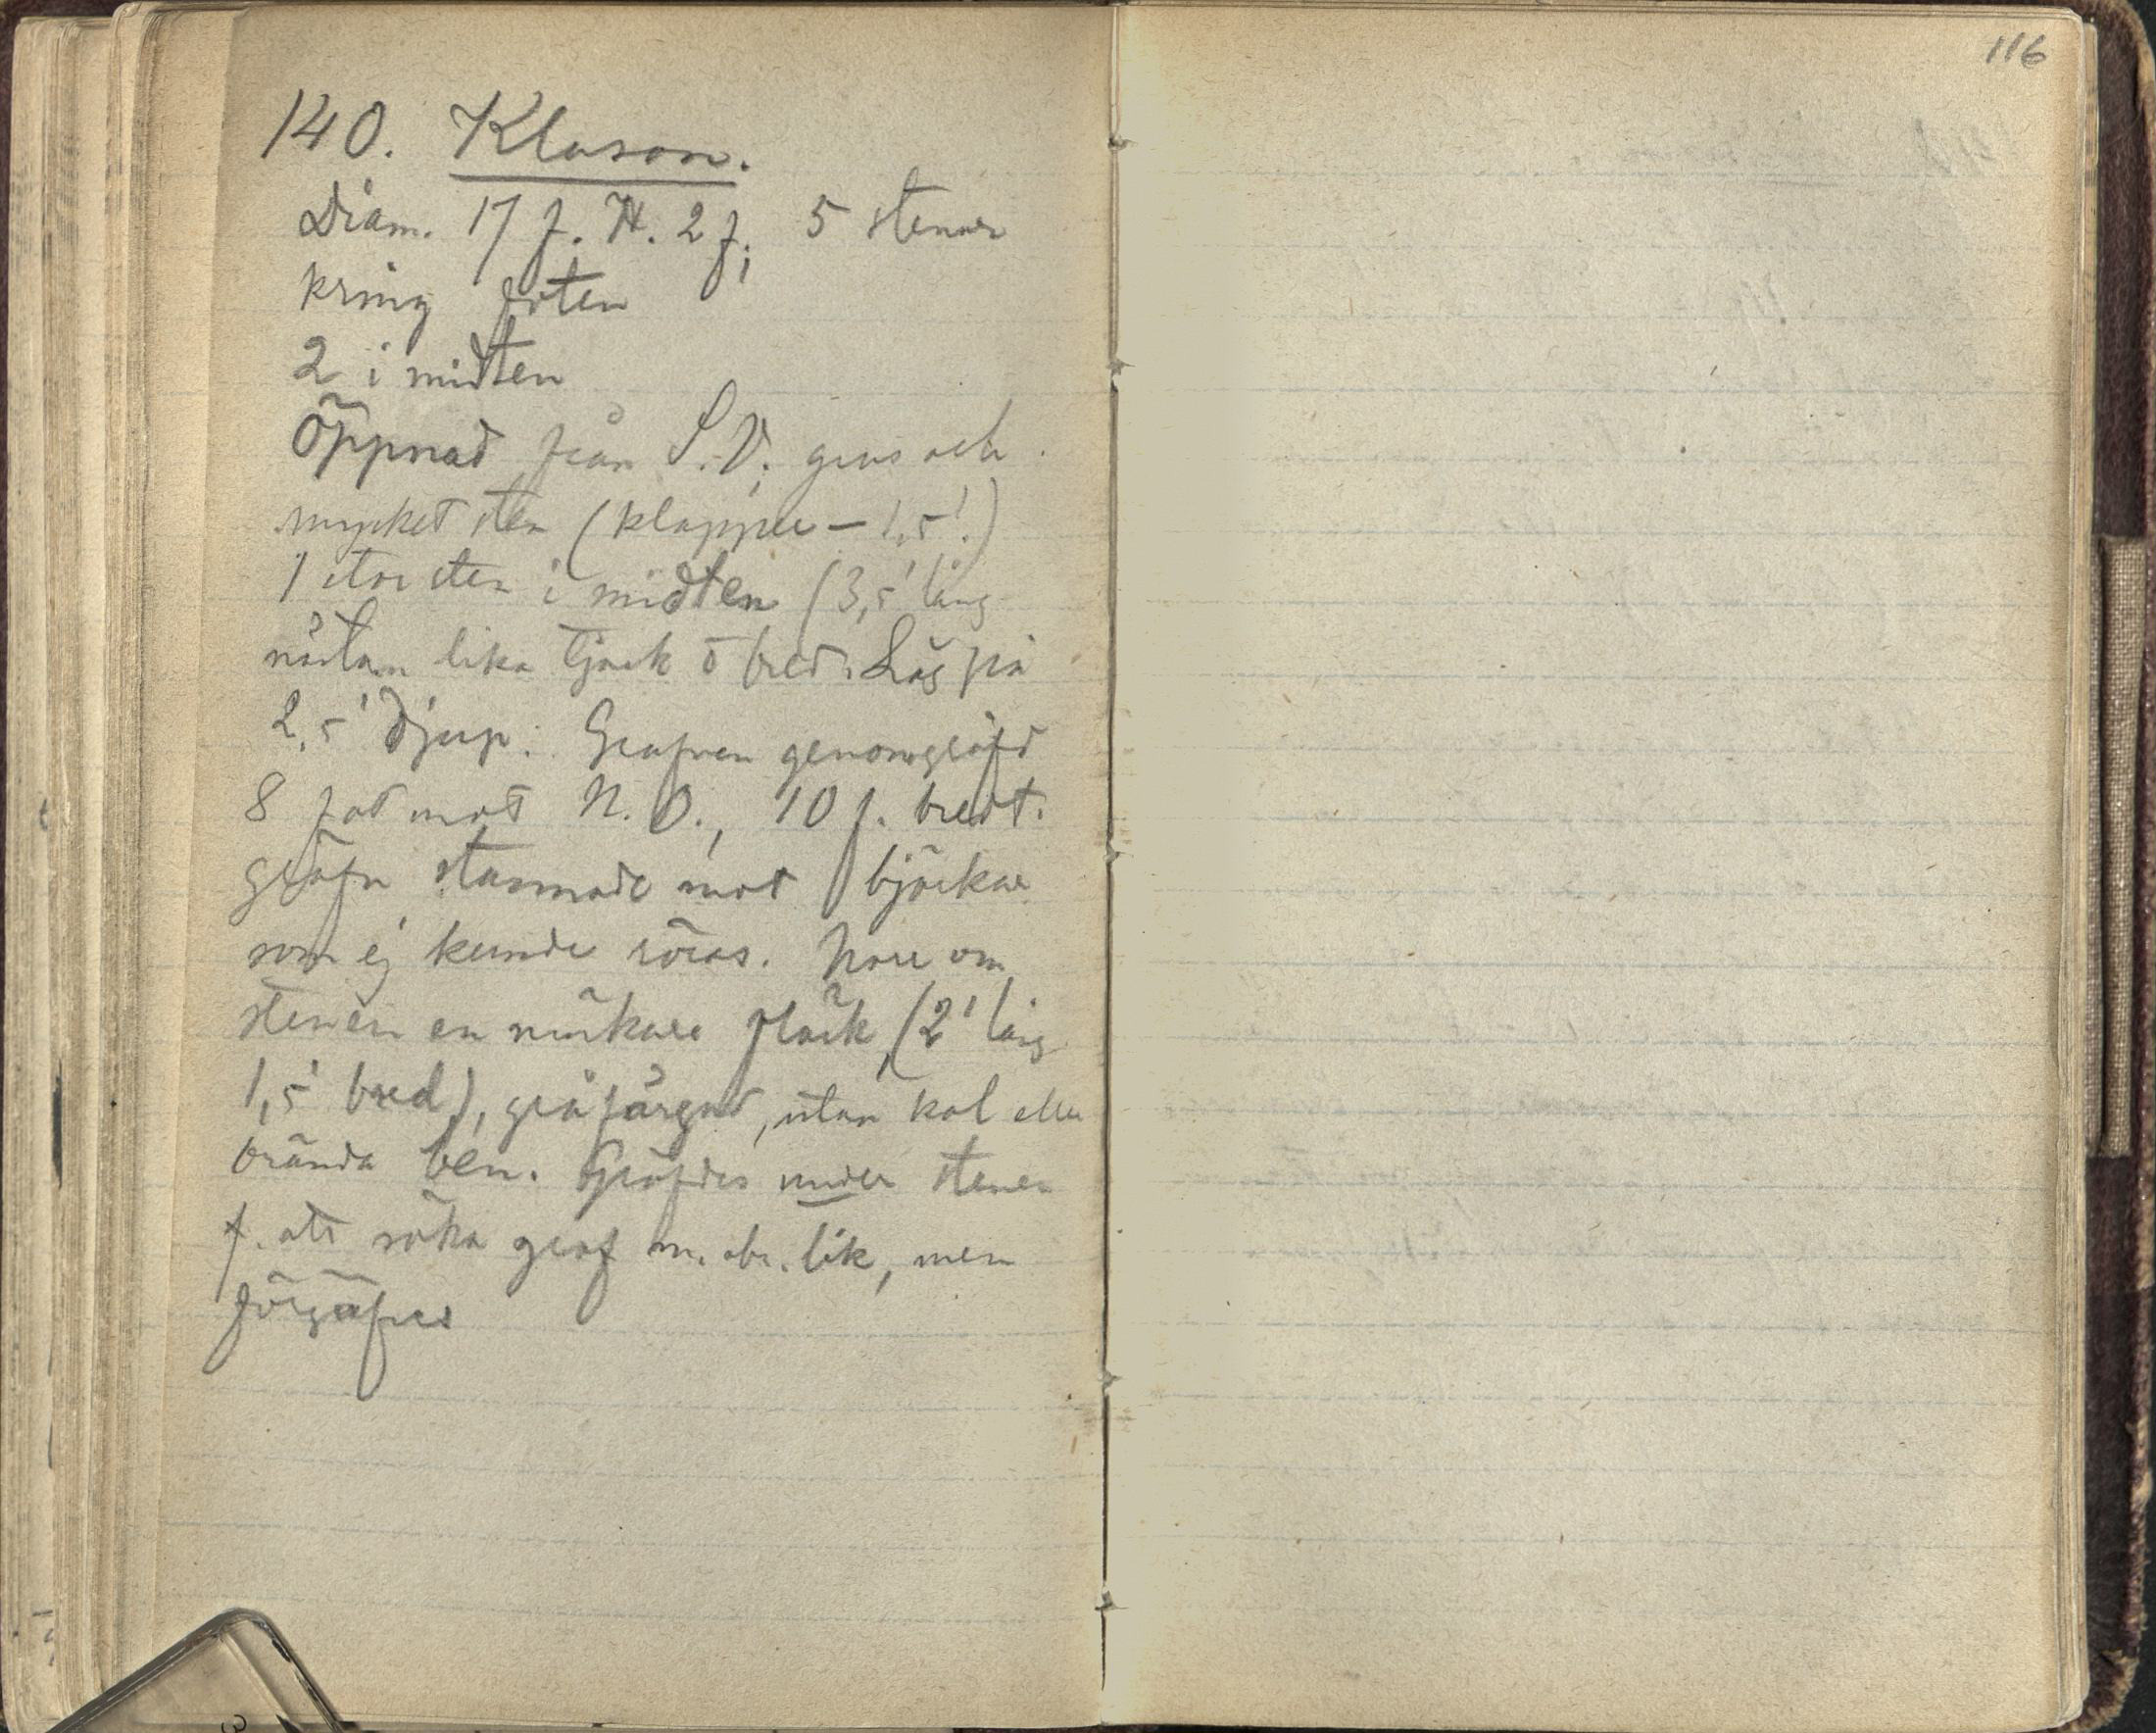 140. Klason.
Diam. 17 f. H. 2 f; 5 stenar
kring foten
2 i midten
Öppnad från S.V; grus och
mycket sten (klapper – 1,5'!)
1 stor sten i midten (3,5' lång
nästan lika tjock o bred. Låg på
2,5' djup. Grafven genomgräfd
8 fot mot N.O., 10 f. bredt.
gräfn stannade mot björkar
som ej kunde röras. Norr om
stenen en mörkare fläck, (2' lång
1,5' bred), gråfärgad, utan kol eller
brända ben. Gräfdes under stenen
f. att söka graf m. obr. lik, men
förgäfves
116